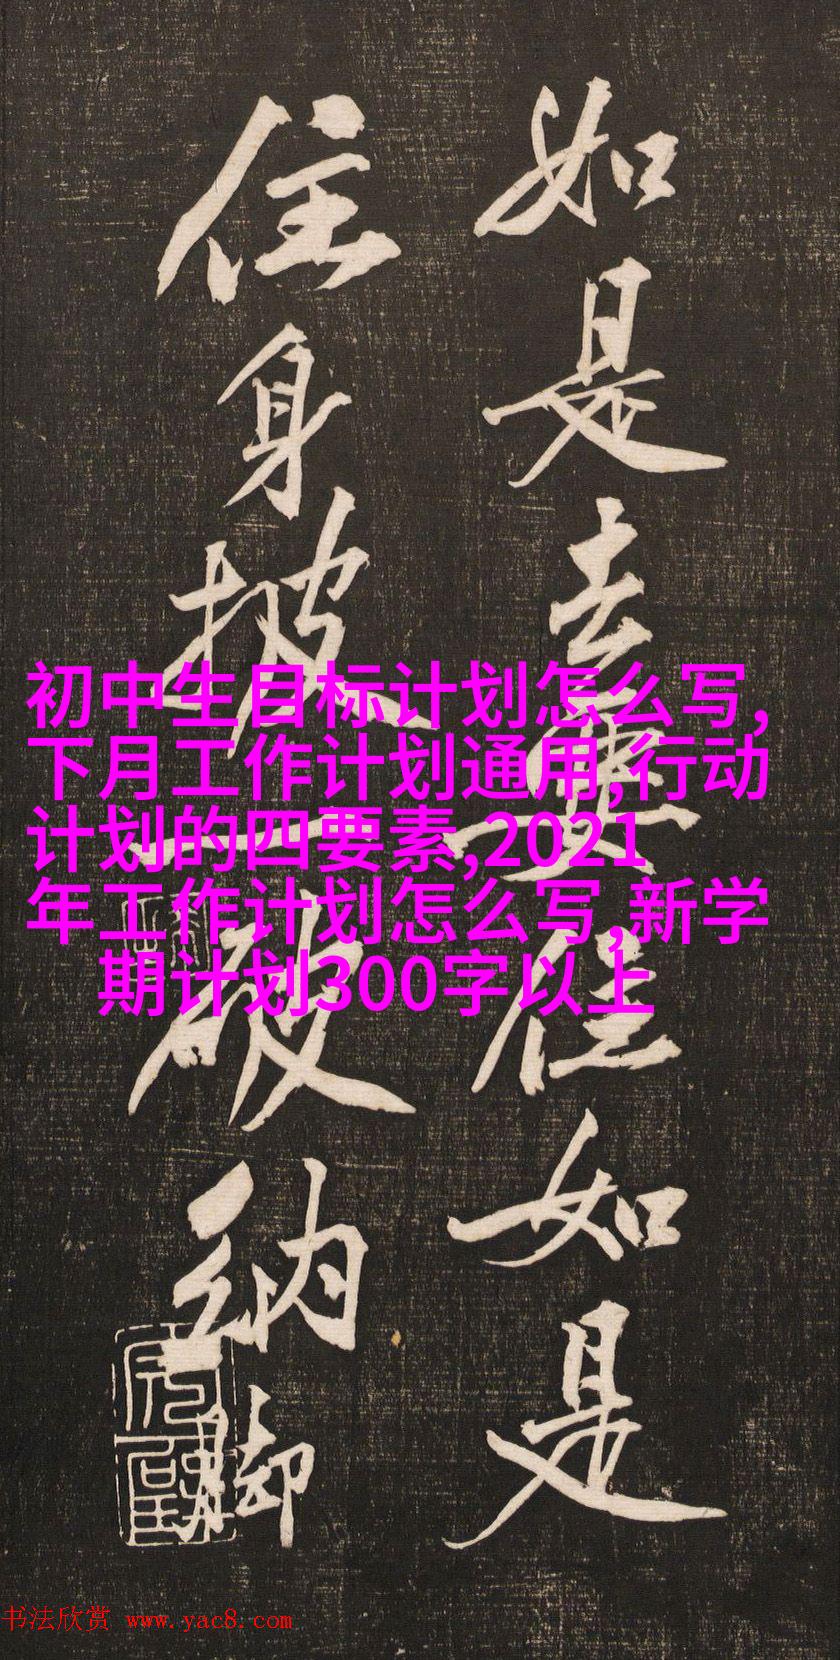 如是去無住如是
住身披一破衲脚
初中生目标计划怎么写,
下月工作计划通用,行动
计划的四要素,2021
年工作计划怎么写,新学
期计划300字以上
书法欣赏 www.yac8.com